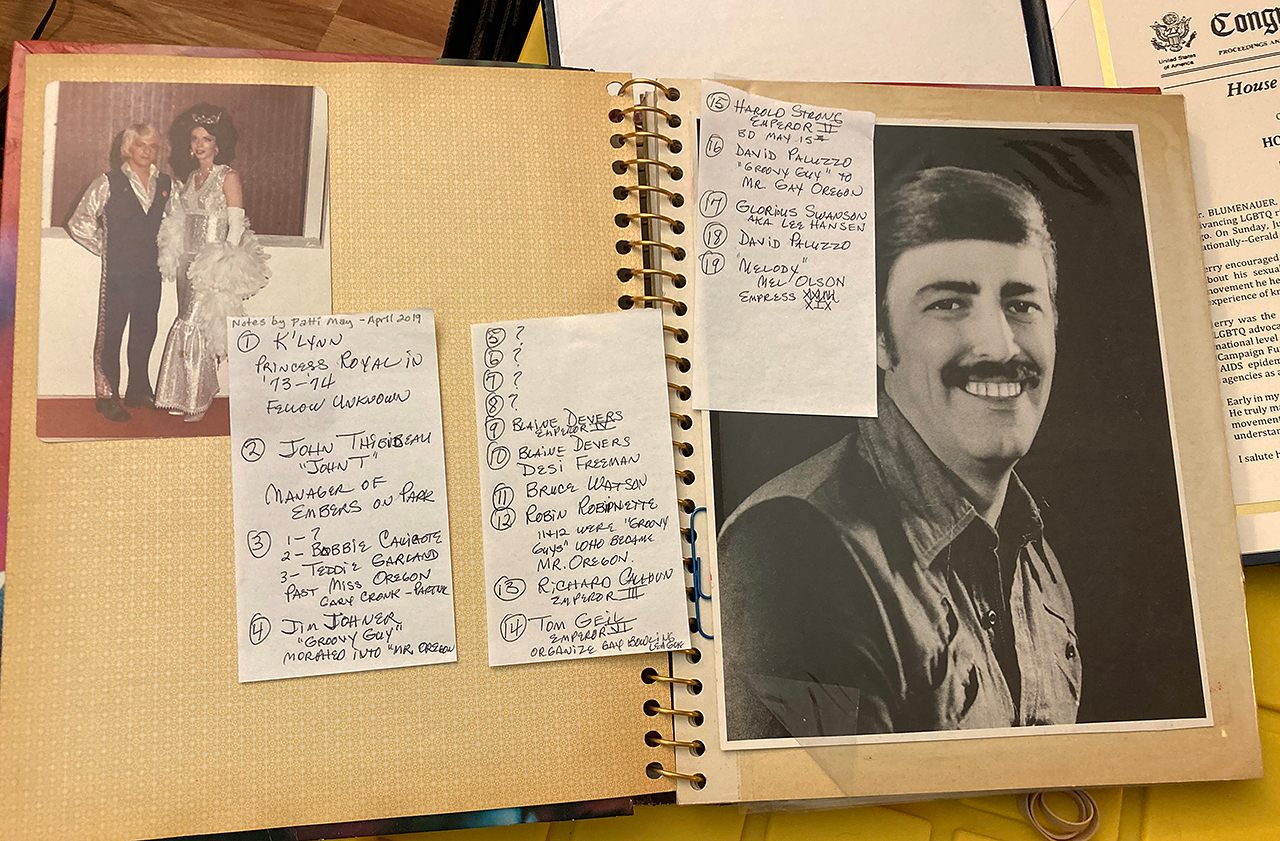 Notes by Patti May - April 2019
① K'LYNN
PRINCESS ROYAL IN
'73-74
FELLOW UNKNOWN
② JOHN THIBIDEAU
"JOHN T"
MANAGER OF
EMBERS ON PARK
③ 1- ?
2- BOBBIE CALICOTE
3- TEDDIE GARLAND
PAST MISS OREGON
GARY CRONK - PARTNER
④ JIM JOHNER
"GROOVY GUY"
MORATED INTO "MR. OREGON
⑤ ?
⑥ ?
⑦ ?
⑧ ?
⑨ BLAINE DEVERS
EMPEROR IV
⑩ BLAINE DEVERS
DESI FREEMAN
⑪ BRUCE WATSON
⑫ ROBIN ROBINETTE
11+12 WERE "GROOVY
GUYS" WHO BECAME
MR. OREGON.
⑬ RICHARD CALHOUN
EMPEROR III
⑭ TOM GEIL
EMPEROR VI
ORGANIZE GAY BOWLING
LEAGUE
⑮ HAROLD STRONG
EMPEROR V
BD MAY 15
⑯ DAVID PALUZZO
"GROOVY GUY" TO
MR. GAY OREGON
⑰ GLORIUS SWANSON
AKA LEE HANSEN
⑱ DAVID PALUZZO
⑲ "MELODY"
MEL OLSON
EMPRESS
XIX
United States
of America
PROCEEDINGS
House
BLUMENAUER.
LGBTQ
On Sunday,
--Gerald
encouraged
about his
movement he
experience of
was the
LGBTQ
national level
Campaign
AIDS
agencies as
Early in my
He truly
movement
I salute